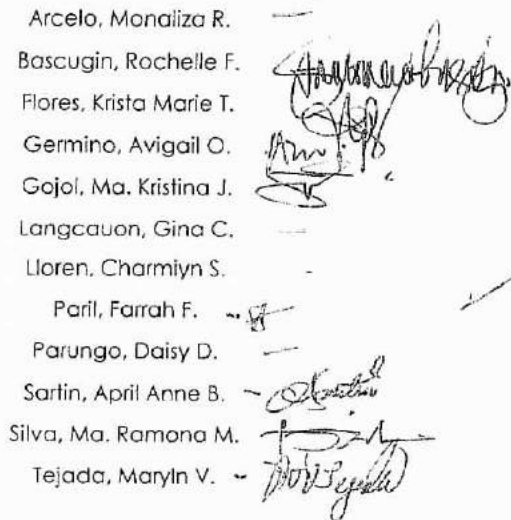 Arcelo, Monaliza R.
Bascugin, Rochelle F.
Flores, Krista Marie T.
Germino, Avigail O.
Gojol, Ma. Kristina J.
Langcauon, Gina C.
Lloren, Charmlyn S.
Paril, Farrah F.
Parungo, Daisy D.
Sartin, April Anne B.
Silva, Ma. Ramona M.
Tejada, Maryln V.